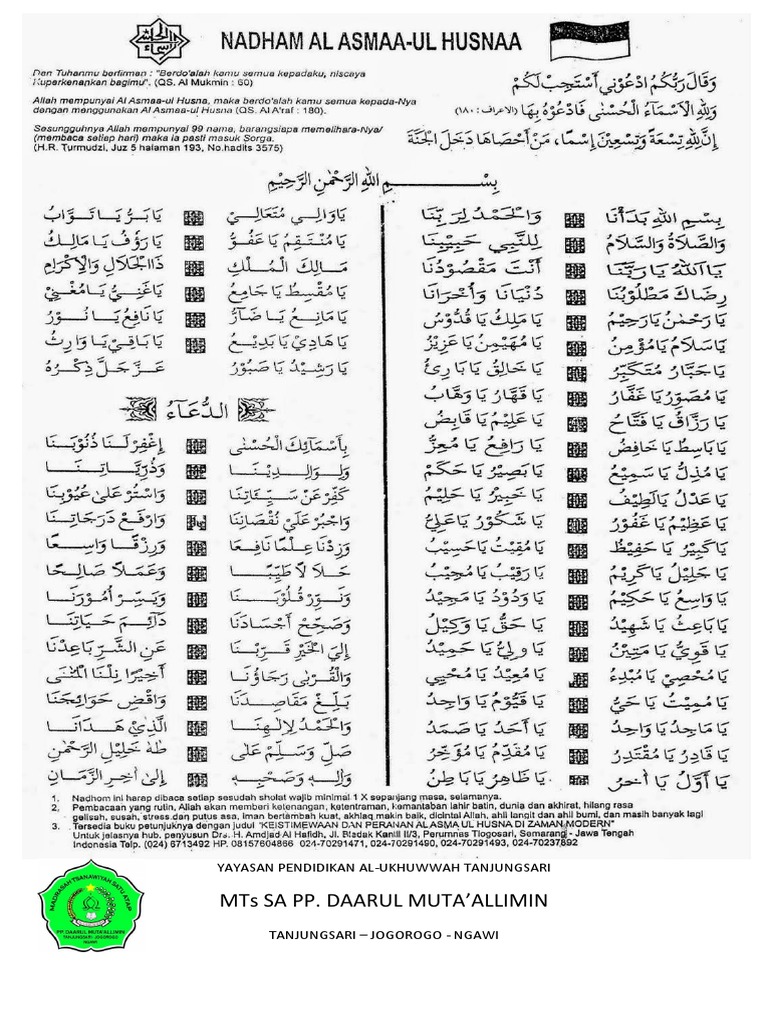 NADHAM AL ASMAA-UL HUSNAA
Dan Tuhanmu berfirman : "Berdo'alah kamu semua kepadaku, niscaya
Kuperkenankan bagimu". (QS. Al Mukmin : 60)
Allah mempunyai Al Asmaa-ul Husna, maka berdo'alah kamu semua kepada-Nya
dengan menggunakan Al Asmaa-ul Husna (QS. Al A'raf : 180).
Sesungguhnya Allah mempunyai 99 nama, barangsiapa memelihara-Nya/
(membaca setiap hari) maka ia pasti masuk Sorga.
(H.R. Turmudzi, Juz 5 halaman 193, No.hadits 3575)
وَقَالَ رَبُّكُمُ ادْعُوْنِيْ اَسْتَجِبْ لَكُمْ
وَلِلّٰهِ الْاَسْمَاءُ الْحُسْنٰى فَادْعُوْهُ بِهَا (الاعراف : ١٨٠)
إِنَّ لِلّٰهِ تِسْعَةً وَتِسْعِيْنَ إِسْمًا، مَنْ أَحْصَاهَا دَخَلَ الْجَنَّةَ
بِسْمِ اللهِ الرَّحْمٰنِ الرَّحِيْمِ
بِسْمِ اللهِ بَدَأْنَا وَالْحَمْدُ لِرَبِّنَا
وَالصَّلَاةُ وَالسَّلَامُ لِلنَّبِيِّ حَبِيْبِنَا
يَا اَللهُ يَا رَبَّنَا أَنْتَ مَقْصُوْدُنَا
رِضَاكَ مَطْلُوْبُنَا دُنْيَانَا وَأُخْرَانَا
يَا رَحْمٰنُ يَا رَحِيْمُ يَا مَلِكُ يَا قُدُّوْسُ
يَا سَلَامُ يَا مُؤْمِنُ يَا مُهَيْمِنُ يَا عَزِيْزُ
يَا جَبَّارُ مُتَكَبِّرُ يَا خَالِقُ يَا بَارِئُ
يَا مُصَوِّرُ يَا غَفَّارُ يَا قَهَّارُ يَا وَهَّابُ
يَا رَزَّاقُ يَا فَتَّاحُ يَا عَلِيْمُ يَا قَابِضُ
يَا بَاسِطُ يَا خَافِضُ يَا رَافِعُ يَا مُعِزُّ
يَا مُذِلُّ يَا سَمِيْعُ يَا بَصِيْرُ يَا حَكَمْ
يَا عَدْلُ يَا لَطِيْفُ يَا خَبِيْرُ يَا حَلِيْمُ
يَا عَظِيْمُ يَا غَفُوْرُ يَا شَكُوْرُ يَا عَلِيُّ
يَا كَبِيْرُ يَا حَفِيْظُ يَا مُقِيْتُ يَا حَسِيْبُ
يَا جَلِيْلُ يَا كَرِيْمُ يَا رَقِيْبُ يَا مُجِيْبُ
يَا وَاسِعُ يَا حَكِيْمُ يَا وَدُوْدُ يَا مَجِيْدُ
يَا بَاعِثُ يَا شَهِيْدُ يَا حَقُّ يَا وَكِيْلُ
يَا قَوِيُّ يَا مَتِيْنُ يَا وَلِيُّ يَا حَمِيْدُ
يَا مُحْصِيْ يَا مُبْدِءُ يَا مُعِيْدُ يَا مُحْيِي
يَا مُمِيْتُ يَا حَيُّ يَا قَيُّوْمُ يَا وَاحِدُ
يَا مَاجِدُ يَا وَاحِدُ يَا أَحَدُ يَا صَمَدُ
يَا قَادِرُ يَا مُقْتَدِرُ يَا مُقَدِّمُ يَا مُؤَخِّرُ
يَا أَوَّلُ يَا أٰخِرُ يَا ظَاهِرُ يَا بَاطِنُ
يَا وَالِي مُتَعَالِيْ يَا بَرُّ يَا تَوَّابُ
يَا مُنْتَقِمُ يَا عَفُوُّ يَا رَؤُفُ يَا مَالِكُ
مَالِكَ الْمُلْكِ ذَا الْجَلَالِ وَالْإِكْرَامِ
يَا مُقْسِطُ يَا جَامِعُ يَا غَنِيُّ يَا مُغْنِيْ
يَا مَانِعُ يَا ضَآرُّ يَا نَافِعُ يَا نُوْرُ
يَا هَادِيْ يَا بَدِيْعُ يَا بَاقِيْ يَا وَارِثُ
يَا رَشِيْدُ يَا صَبُوْرُ عَزَّ جَلَّ ذِكْرُهُ
الدُّعَاءُ
بِأَسْمَائِكَ الْحُسْنٰى إِغْفِرْ لَنَا ذُنُوْبَنَا
وَلِوَالِدِيْنَا وَذُرِّيَّاتِنَا
كَفِّرْ عَنْ سَيِّئَاتِنَا وَاسْتُرْ عَلٰى عُيُوْبِنَا
وَاجْبُرْ عَلٰى نُقْصَانِنَا وَارْفَعْ دَرَجَاتِنَا
وَزِدْنَا عِلْمًا نَافِعًا وَرِزْقًا وَاسِعًا
حَلَالًا طَيِّبًا وَعَمَلًا صَالِحًا
وَنَوِّرْ قُلُوْبَنَا وَيَسِّرْ أُمُوْرَنَا
وَصَحِّحْ أَجْسَادَنَا دَآئِمَ حَيَاتِنَا
إِلَى الْخَيْرِ قَرِّبْنَا عَنِ الشَّرِّ بَاعِدْنَا
وَالْقُرْبٰى رَجَاؤُنَا أَخِيْرًا نِلْنَا الْمُنٰى
بَلِّغْ مَقَاصِدَنَا وَاقْضِ حَوَائِجَنَا
وَالْحَمْدُ لِإِلٰهِنَا الَّذِيْ هَدَانَا
صَلِّ وَسَلِّمْ عَلٰى طٰهٰ خَلِيْلِ الرَّحْمٰنِ
وَاٰلِهِ وَصَحْبِهِ إِلٰى أٰخِرِ الزَّمَانِ
1. Nadhom ini harap dibaca setiap sesudah sholat wajib minimal 1 X sepanjang masa, selamanya.
2. Pembacaan yang rutin, Allah akan memberi ketenangan, ketentraman, kemantaban lahir batin, dunia dan akhirat, hilang rasa
gelisah, susah, stress dan putus asa, Iman bertambah kuat, akhlaq makin baik, dicintai Allah, ahli langit dan ahli bumi, dan masih banyak lagi
3. Tersedia buku petunjuknya dengan judul "KEISTIMEWAAN DAN PERANAN AL ASMA UL HUSNA DI ZAMAN MODERN"
Untuk jelasnya hub. penyusun Drs. H. Amdjad Al Hafidh, Jl. Badak Kanlil II/3, Perumnas Tlogosari, Semarang - Jawa Tengah
Indonesia Telp. (024) 6713492 HP. 08157604866 024-70291471, 024-70291490, 024-70291493, 024-70237892
YAYASAN PENDIDIKAN AL-UKHUWWAH TANJUNGSARI
MTs SA PP. DAARUL MUTA'ALLIMIN
TANJUNGSARI – JOGOROGO - NGAWI
MADRASAH TSANAWIYAH SATU ATAP
PP. DAARUL MUTA'ALLIMIN
TANJUNGSARI - JOGOROGO
NGAWI